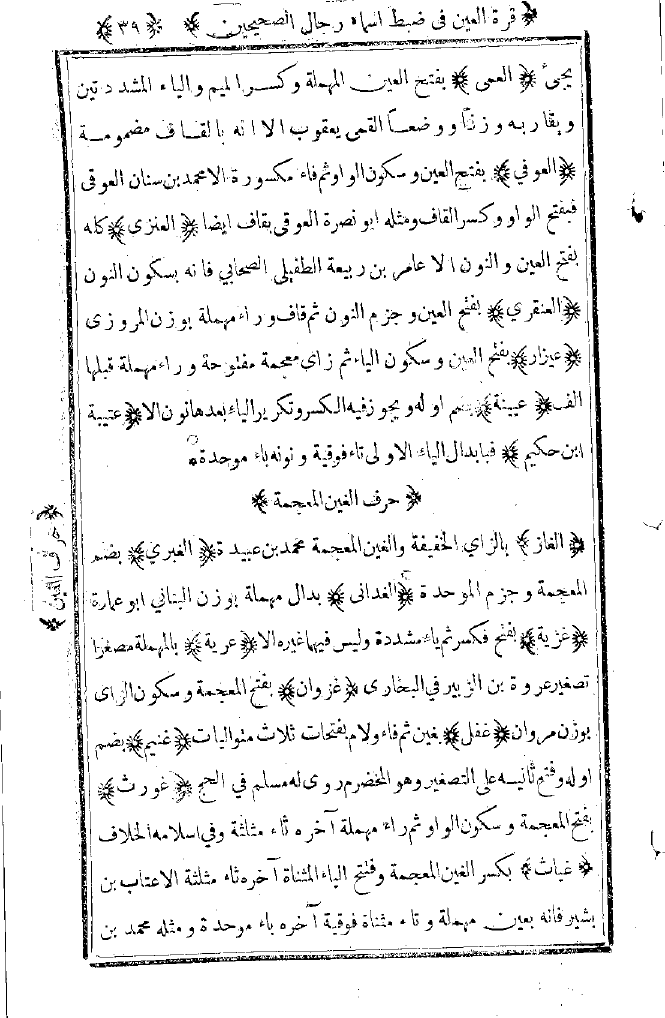 ﴿ قرة العين فى ضبط اسماء رجال الصحيحين ﴾ ﴿ ٣٩ ﴾
يجئ ﴿ العمى ﴾ بفتح العين المهملة وكسر الميم والياء المشددتين
ويقاربه وزنًا ووضعًا القمى يعقوب الا انه بالقاف مضمومة
﴿ العوفي ﴾ بفتح العين وسكون الواو ثم فاء مكسورة الا محمد بن سنان العوقى
فبفتح الواو وكسر القاف ومثله ابو نصرة العوقى بقاف ايضا ﴿ العنزى ﴾ كله
بفتح العين والنون الا عامر بن ربيعة الطفيلى الصحابي فانه بسكون النون
﴿ العنقري ﴾ بفتح العين وجزم النون ثم قاف وراء مهملة بوزن المروزى
﴿ عيزار ﴾ بفتح العين وسكون الياء ثم زاي معجمة مفتوحة وراء مهملة قبلها
الف ﴿ عيينة ﴾ بضم اوله ويجوز فيه الكسر وتكرير الياء بعدها نون الا ﴿ عتيبة
ابن حكيم ﴾ فبابدال الياء الاولى تاء فوقية ونونه باء موحدة
﴿ حرف الغين المعجمة ﴾
﴿ الغاز ﴾ بالزاي الخفيفة والغين المعجمة محمد بن عبيدة ﴿ الغبري ﴾ بضم
المعجمة وجزم الموحدة ﴿ الغدانى ﴾ بدال مهملة بوزن البنانى ابو عمارة
﴿ غزية ﴾ بفتح فكسر ثم ياء مشددة وليس فيها غيره الا ﴿ عرية ﴾ بالمهملة مصغرا
تصغير عروة بن الزبير في البخارى ﴿ غزوان ﴾ بفتح المعجمة وسكون الزاى
بوزن مروان ﴿ غفل ﴾ بغين ثم فاء ولام بفتحات ثلاث متواليات ﴿ غنيم ﴾ بضم
اوله وفتح ثانيه على التصغير وهو المخضرم روى له مسلم في الحج ﴿ غورث ﴾
بفتح المعجمة وسكون الواو ثم راء مهملة آخره ثاء مثلثة وفي اسلامه الخلاف
﴿ غياث ﴾ بكسر الغين المعجمة وفتح الياء المثناة آخره ثاء مثلثة الاعتاب بن
بشير فانه بعين مهملة وتاء مثناة فوقية آخره باء موحدة ومثله محمد بن
﴿ حرف الغين ﴾